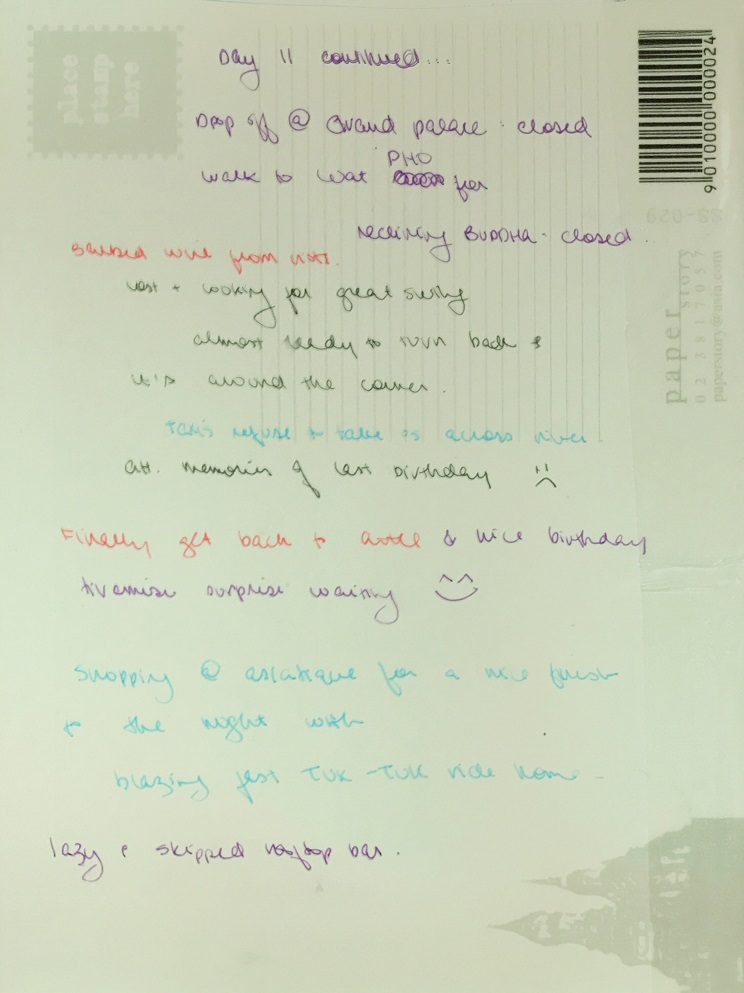 place
stamp
here
Day 11 continued...
Drop off @ Grand palace · closed
PHO
walk to Wat for
receiving BUDDHA · closed.
Barbed wire from riots.
Lost + looking for great swing
almost ready to turn back &
it's around the corner.
taxis refuse to take us across river
ah. memories of last birthday
Finally get back to & nice birthday
tiramisu surprise waiting
Shopping @ asiatique for a nice finish
to the night with
blazing fast TUK-TUK ride home
lazy & skipped rooftop bar.
9 010000 000024
SS-029
paper story
023817057
paperstory@asia.com